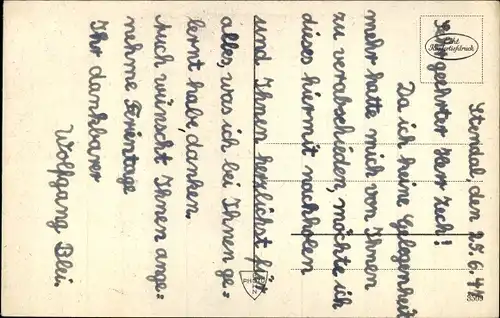 Stendal, den 25.6.44
Sehr geehrter Herr Zech!
Da ich keine Gelegenheit
mehr hatte mich von Ihnen
zu verabschieden, möchte ich
dieses hiermit nachholen
und Ihnen herzlichst für
alles, was ich bei Ihnen ge=
lernt habe, danken.
Auch wünscht Ihnen ange=
nehme Ferientage
Ihr dankbarer
Wolfgang Blei.
Echt
Kupfertiefdruck
3509